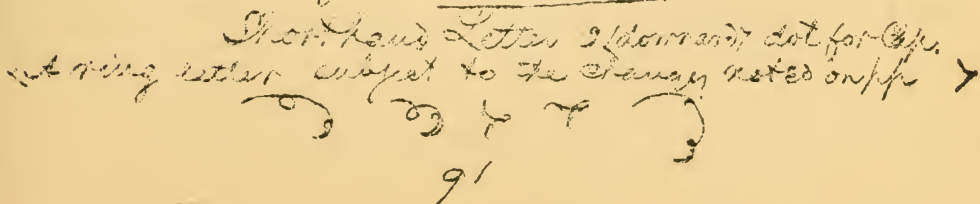 Shorthand Letter 2 (downward) dot for Cap.
A ring letter subject to the changes noted on pp
91